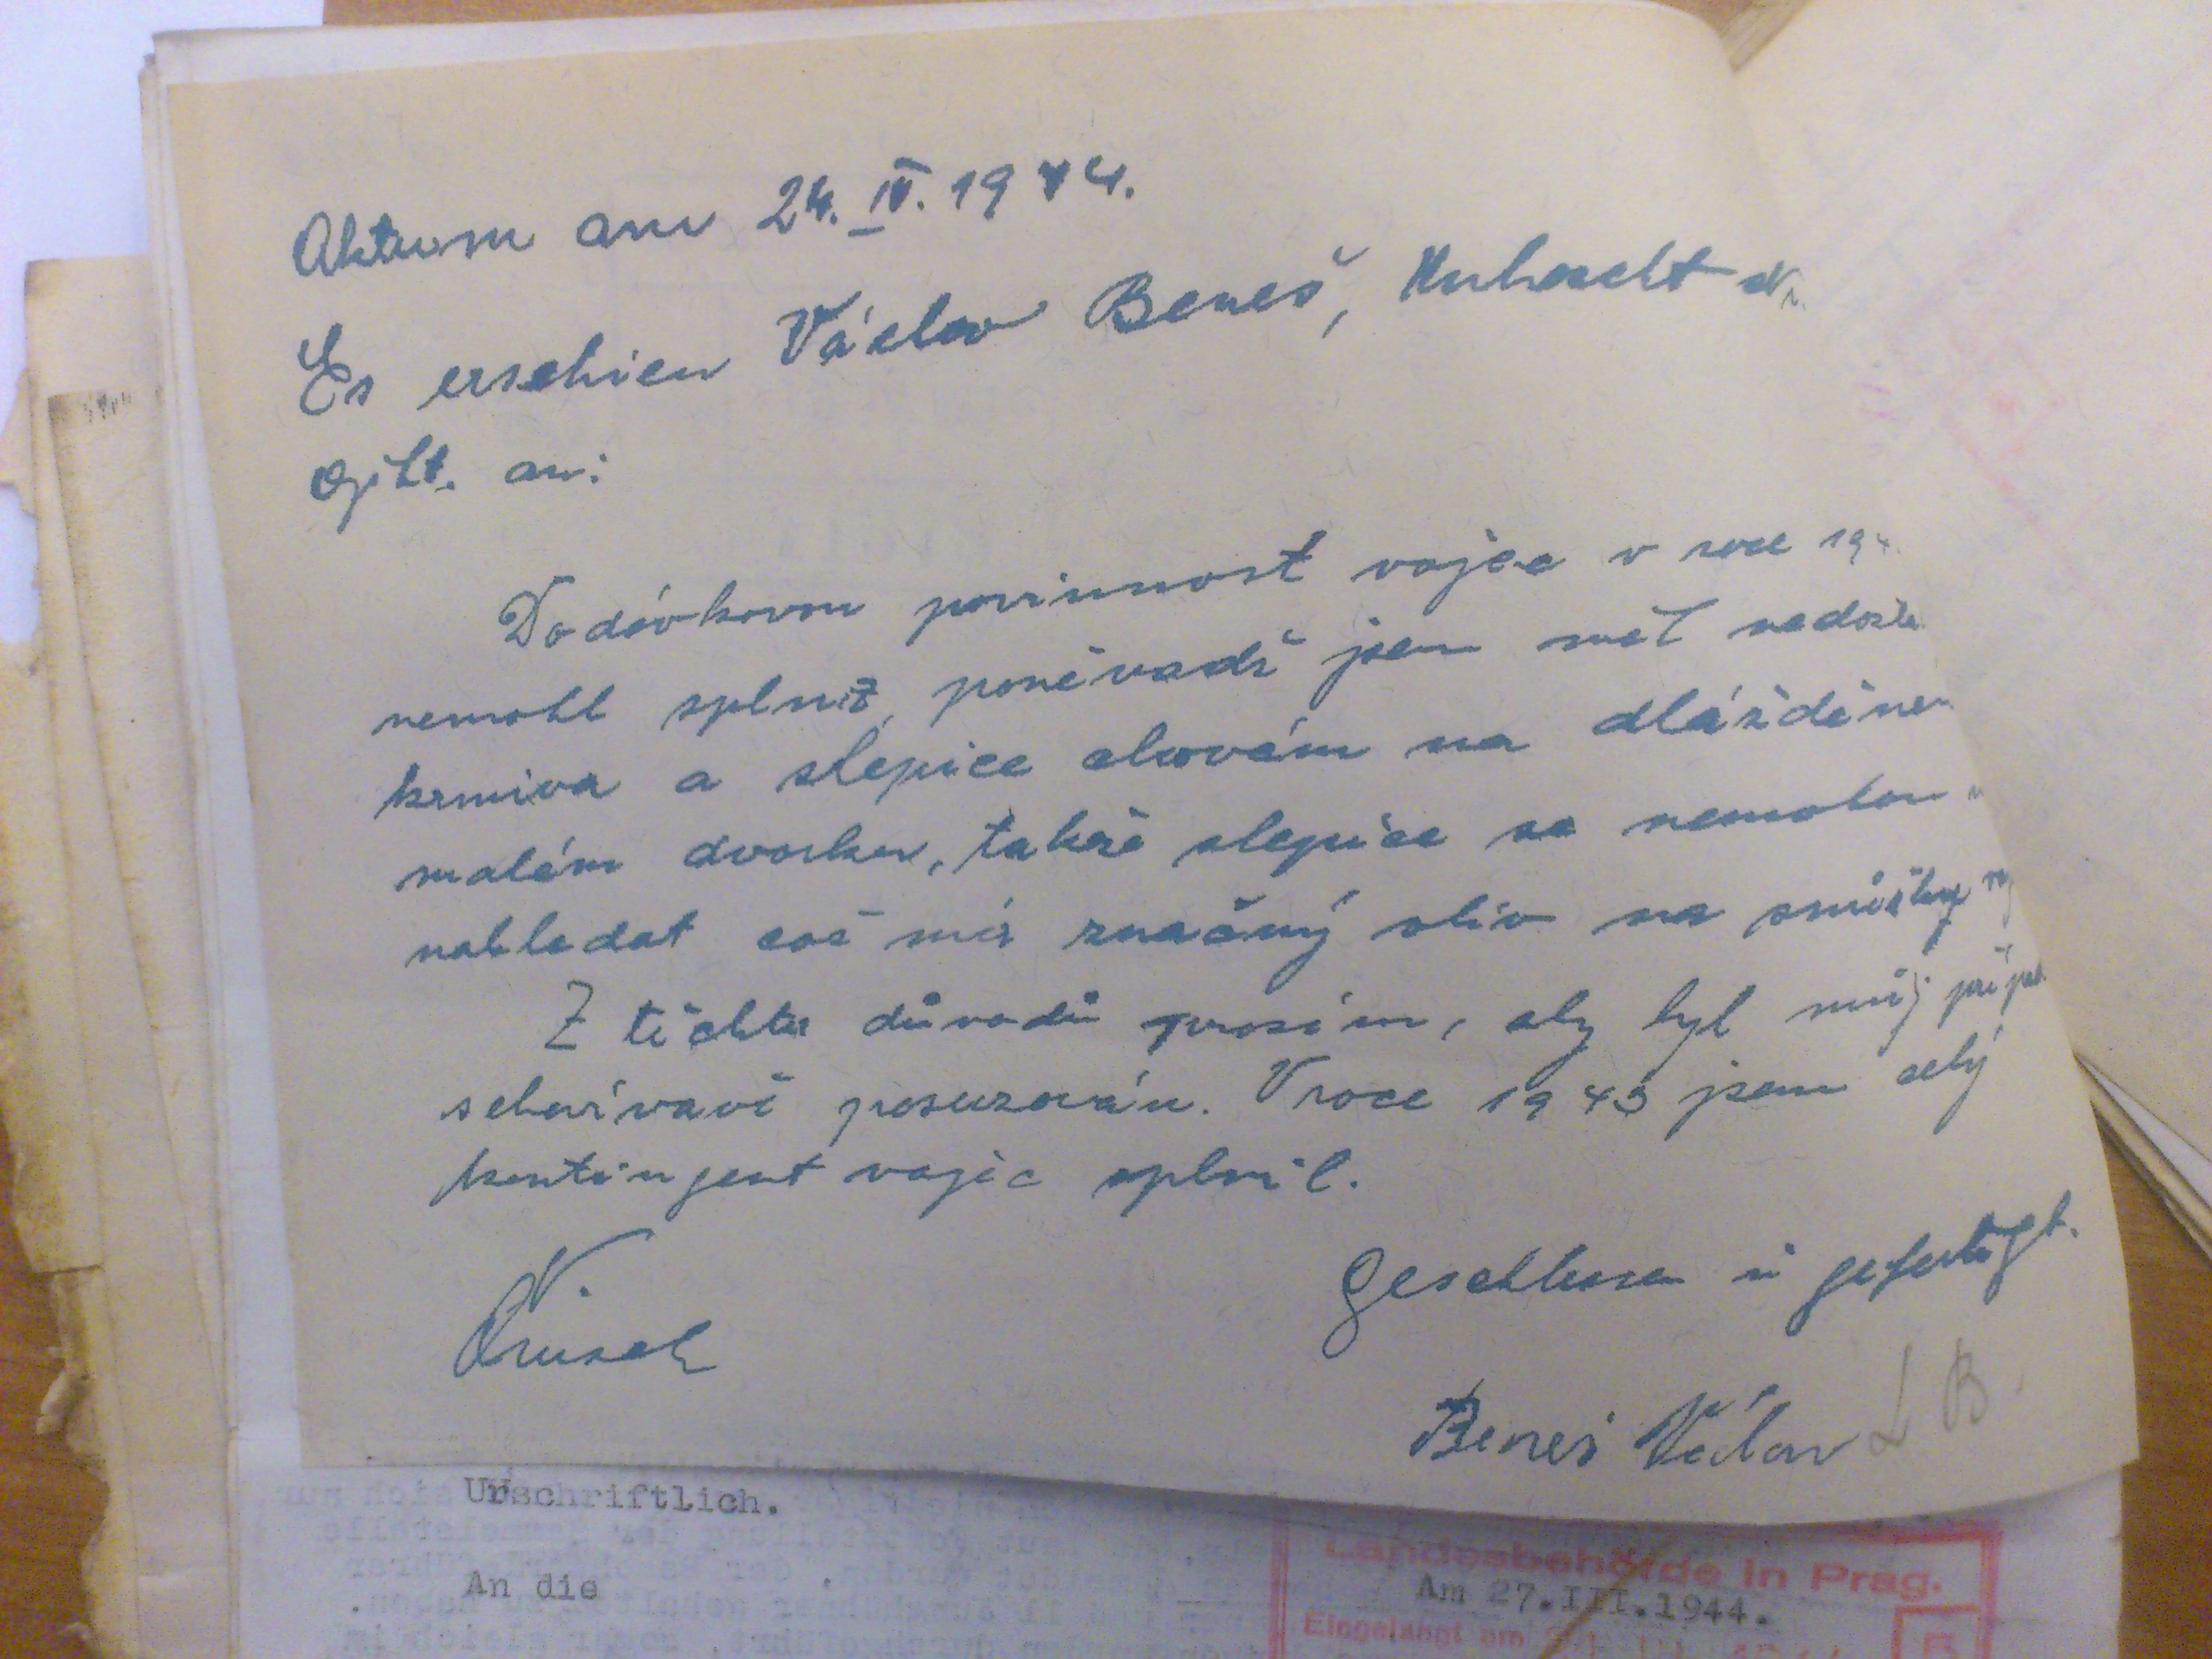 Aktum am 24. IV. 1944.
Es erschien Václav Beneš,
an:
Dodávkovou povinnost vajec v roce 194
nemohl splnit, poněvadž jsem měl nedosta
krmiva a slepice chovám na dlážděném
malém dvorku, takže slepice se nemohou
nahledat což má značný vliv na snůšku
Z těchto důvodů prosím, aby byl můj případ
schovívavě posuzován. V roce 1943 jsem celý
kontingent vajec splnil.
Geschlossen u gefertigt.
Beneš Václav L B.
Urschriftlich.
An die
Landesbehörde in Prag.
Am 27.III.1944.
Eingelangt am